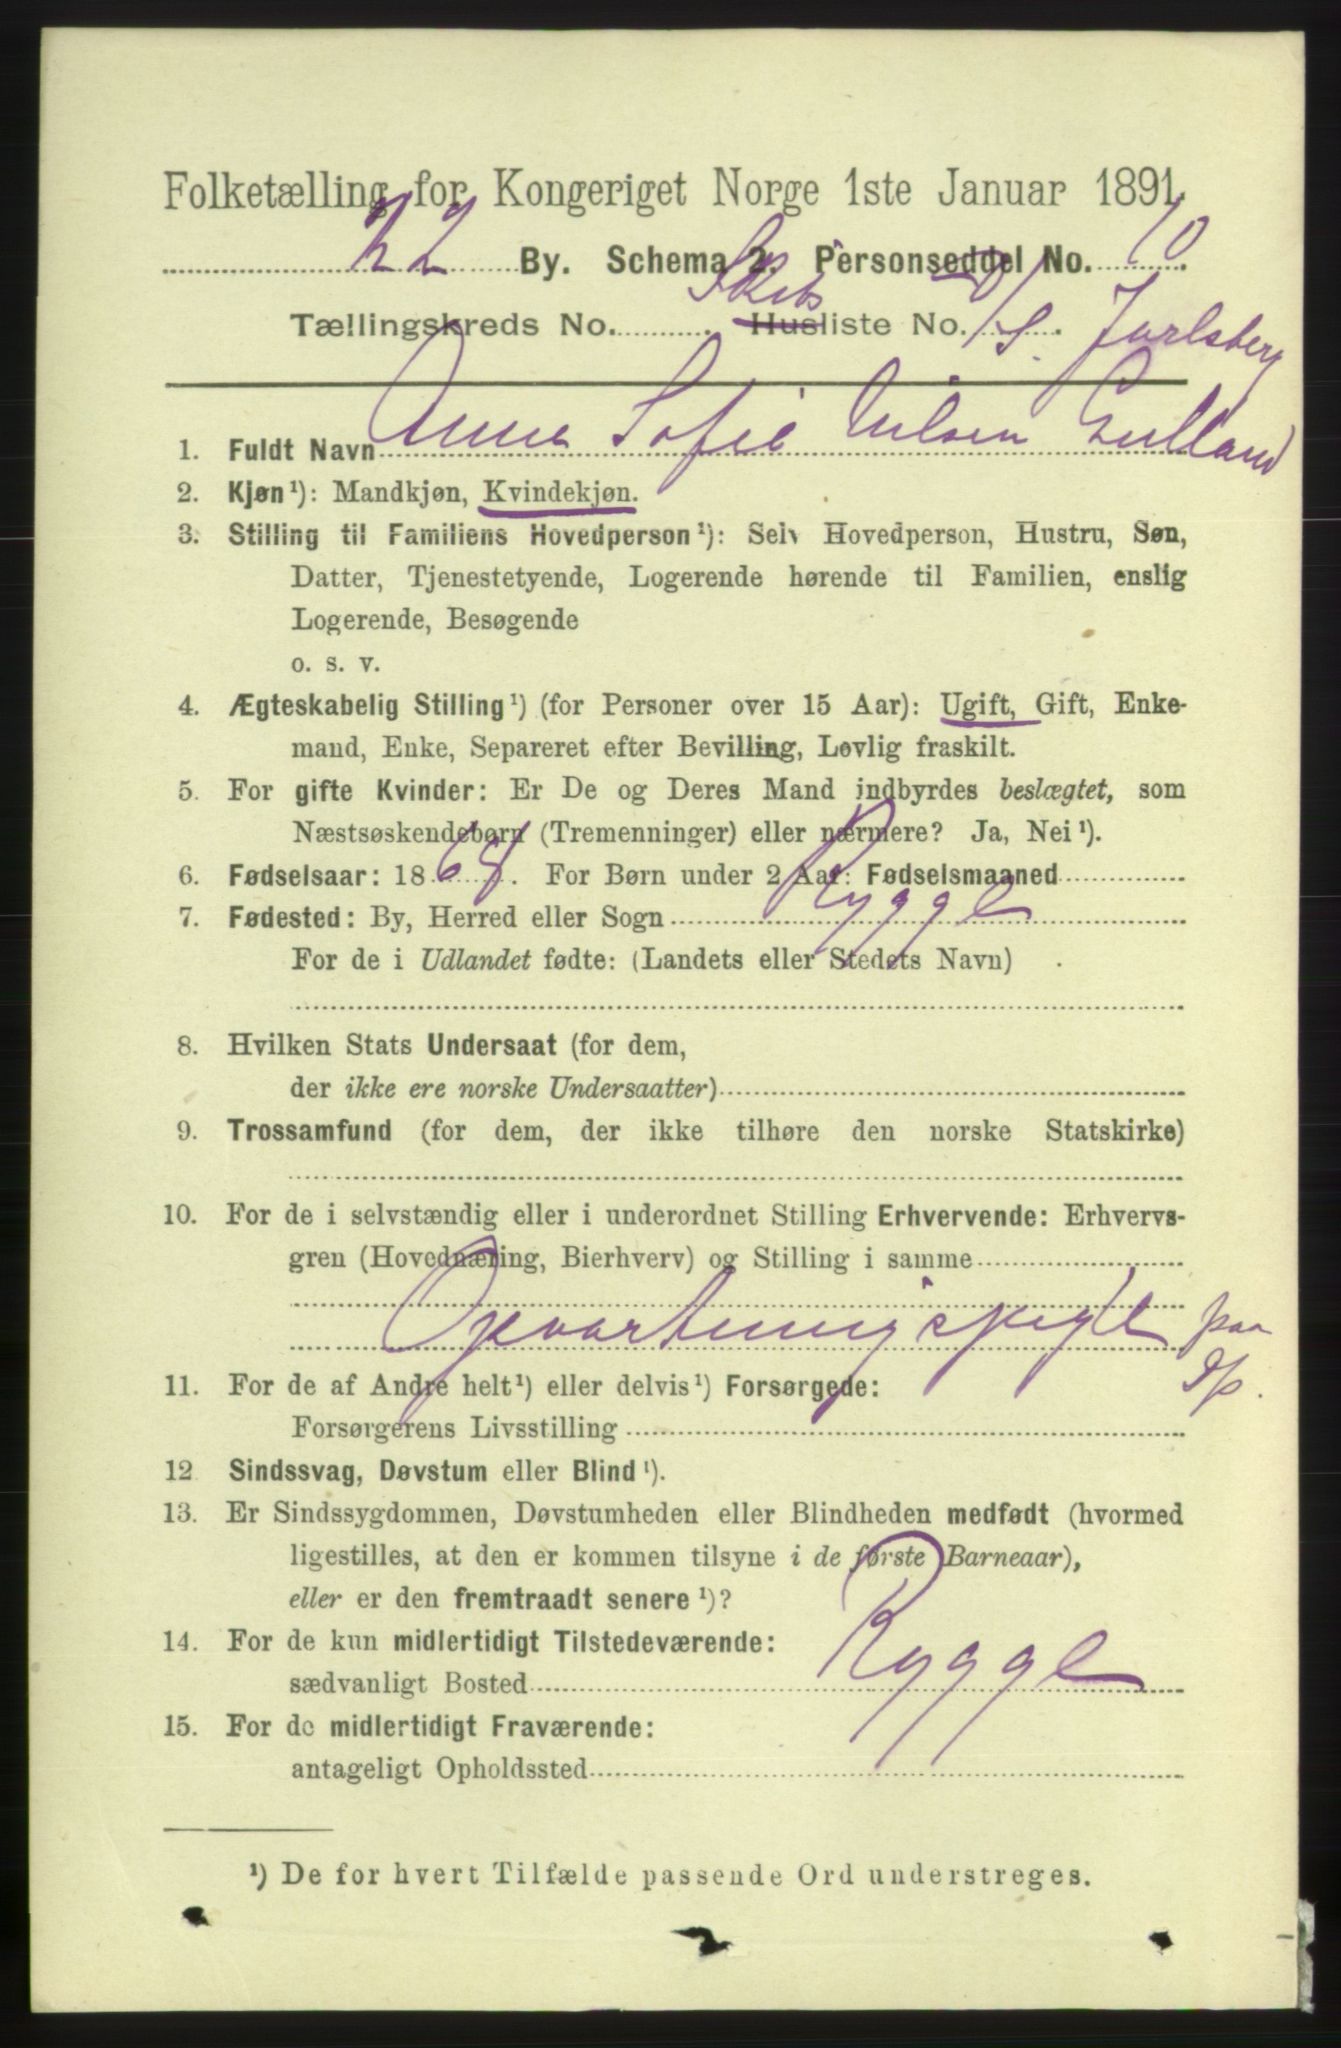 Folketælling for Kongeriget Norge 1ste Januar 1891.
22 By. Schema 2. Personseddel No. 10.
Tællingskreds No. . Skibs Husliste No. . D/S. Jarlsberg
1. Fuldt Navn Anna Sofie Nilsen Gulland
2. Kjøn¹): Mandkjøn, Kvindekjøn.
3. Stilling til Familiens Hovedperson¹): Selv Hovedperson, Hustru, Søn,
Datter, Tjenestetyende, Logerende hørende til Familien, enslig
Logerende, Besøgende
o. s. v.
4. Ægteskabelig Stilling¹) (for Personer over 15 Aar): Ugift, Gift, Enke-
mand, Enke, Separeret efter Bevilling, Løvlig fraskilt.
5. For gifte Kvinder: Er De og Deres Mand indbyrdes beslægtet, som
Næstsøskendebørn (Tremenninger) eller nærmere? Ja, Nei¹).
6. Fødselsaar: 1868. For Børn under 2 Aar: Fødselsmaaned
7. Fødested: By, Herred eller Sogn Rygge
For de i Udlandet fødte: (Landets eller Stedets Navn)
8. Hvilken Stats Undersaat (for dem,
der ikke ere norske Undersaatter)
9. Trossamfund (for dem, der ikke tilhøre den norske Statskirke)
10. For de i selvstændig eller i underordnet Stilling Erhvervende: Erhvervs-
gren (Hovednæring, Bierhverv) og Stilling i samme
Opvartningspige paa
D/S.
11. For de af Andre helt¹) eller delvis¹) Forsørgede:
Forsørgerens Livsstilling
12 Sindssvag, Døvstum eller Blind¹).
13. Er Sindssygdommen, Døvstumheden eller Blindheden medfødt (hvormed
ligestilles, at den er kommen tilsyne i de første Barneaar),
eller er den fremtraadt senere¹)?
14. For de kun midlertidigt Tilstedeværende:
sædvanligt Bosted Rygge
15. For de midlertidigt Fraværende:
antageligt Opholdssted
¹) De for hvert Tilfælde passende Ord understreges.